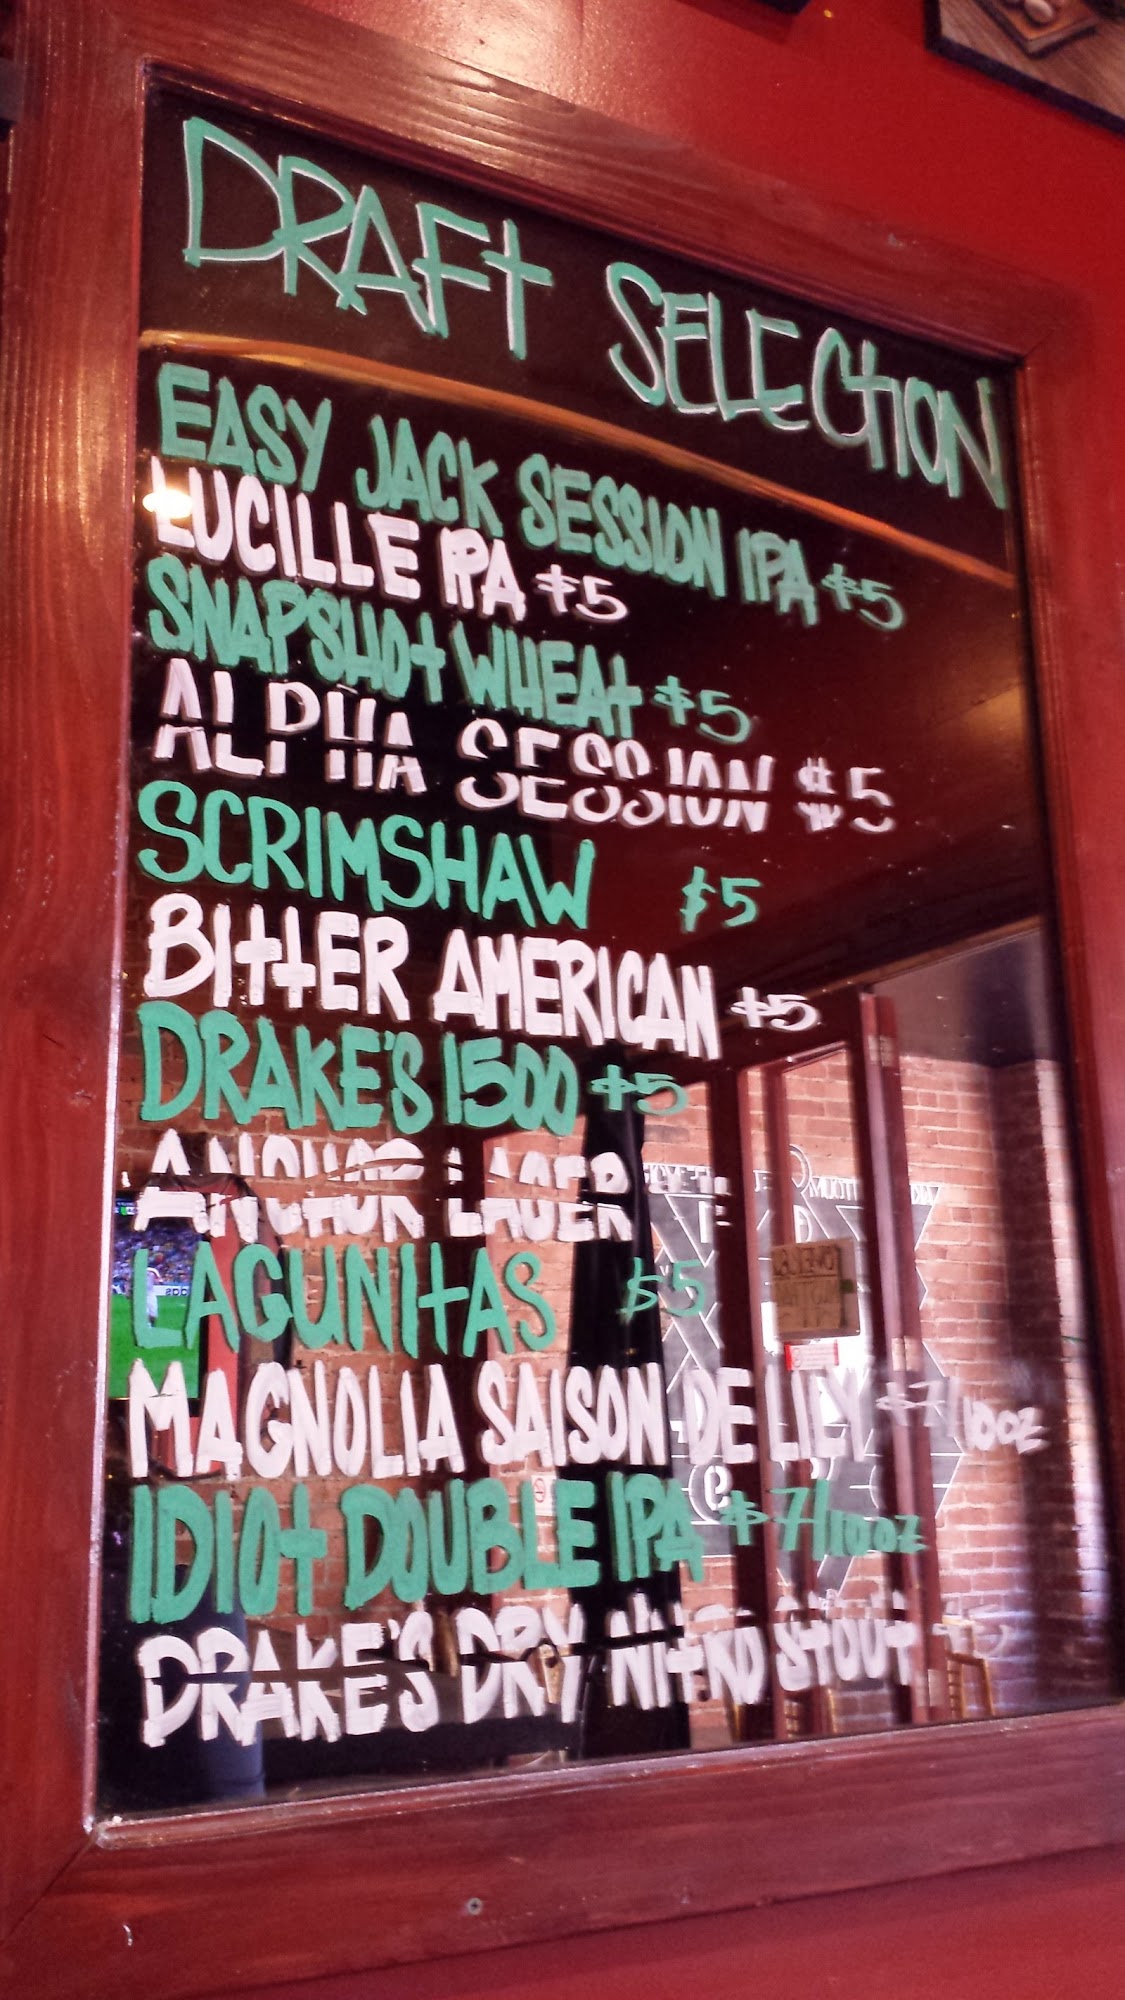 DRAFT SELECTION
EASY JACK SESSION IPA $5
LUCILLE IPA $5
SNAPSHOT WHEAT $5
ALPHA SESSION $5
SCRIMSHAW $5
BITTER AMERICAN $5
DRAKE'S 1500 $5
ANCHOR LAGER
LAGUNITAS $5
MAGNOLIA SAISON DE LILY $7/10oz
IDIOT DOUBLE IPA $7/10oz
DRAKE'S DRY NITRO STOUT